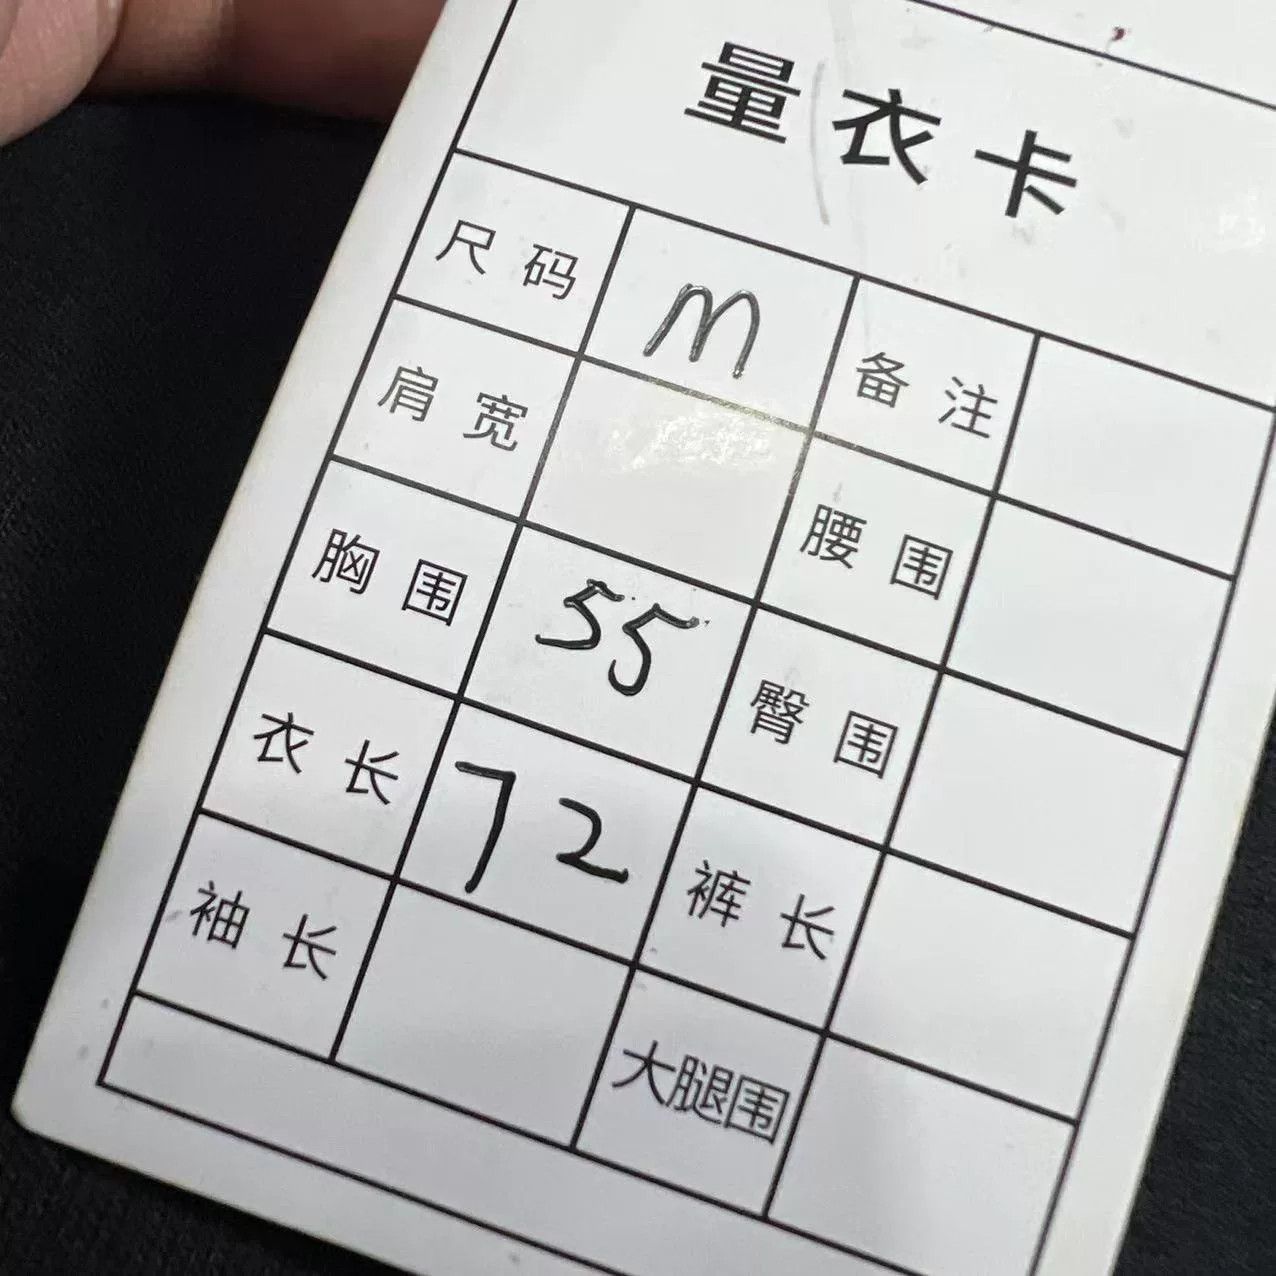 量衣卡
尺码 m 备注
肩宽 腰围
胸围 55 臀围
衣长 72 裤长
袖长 大腿围